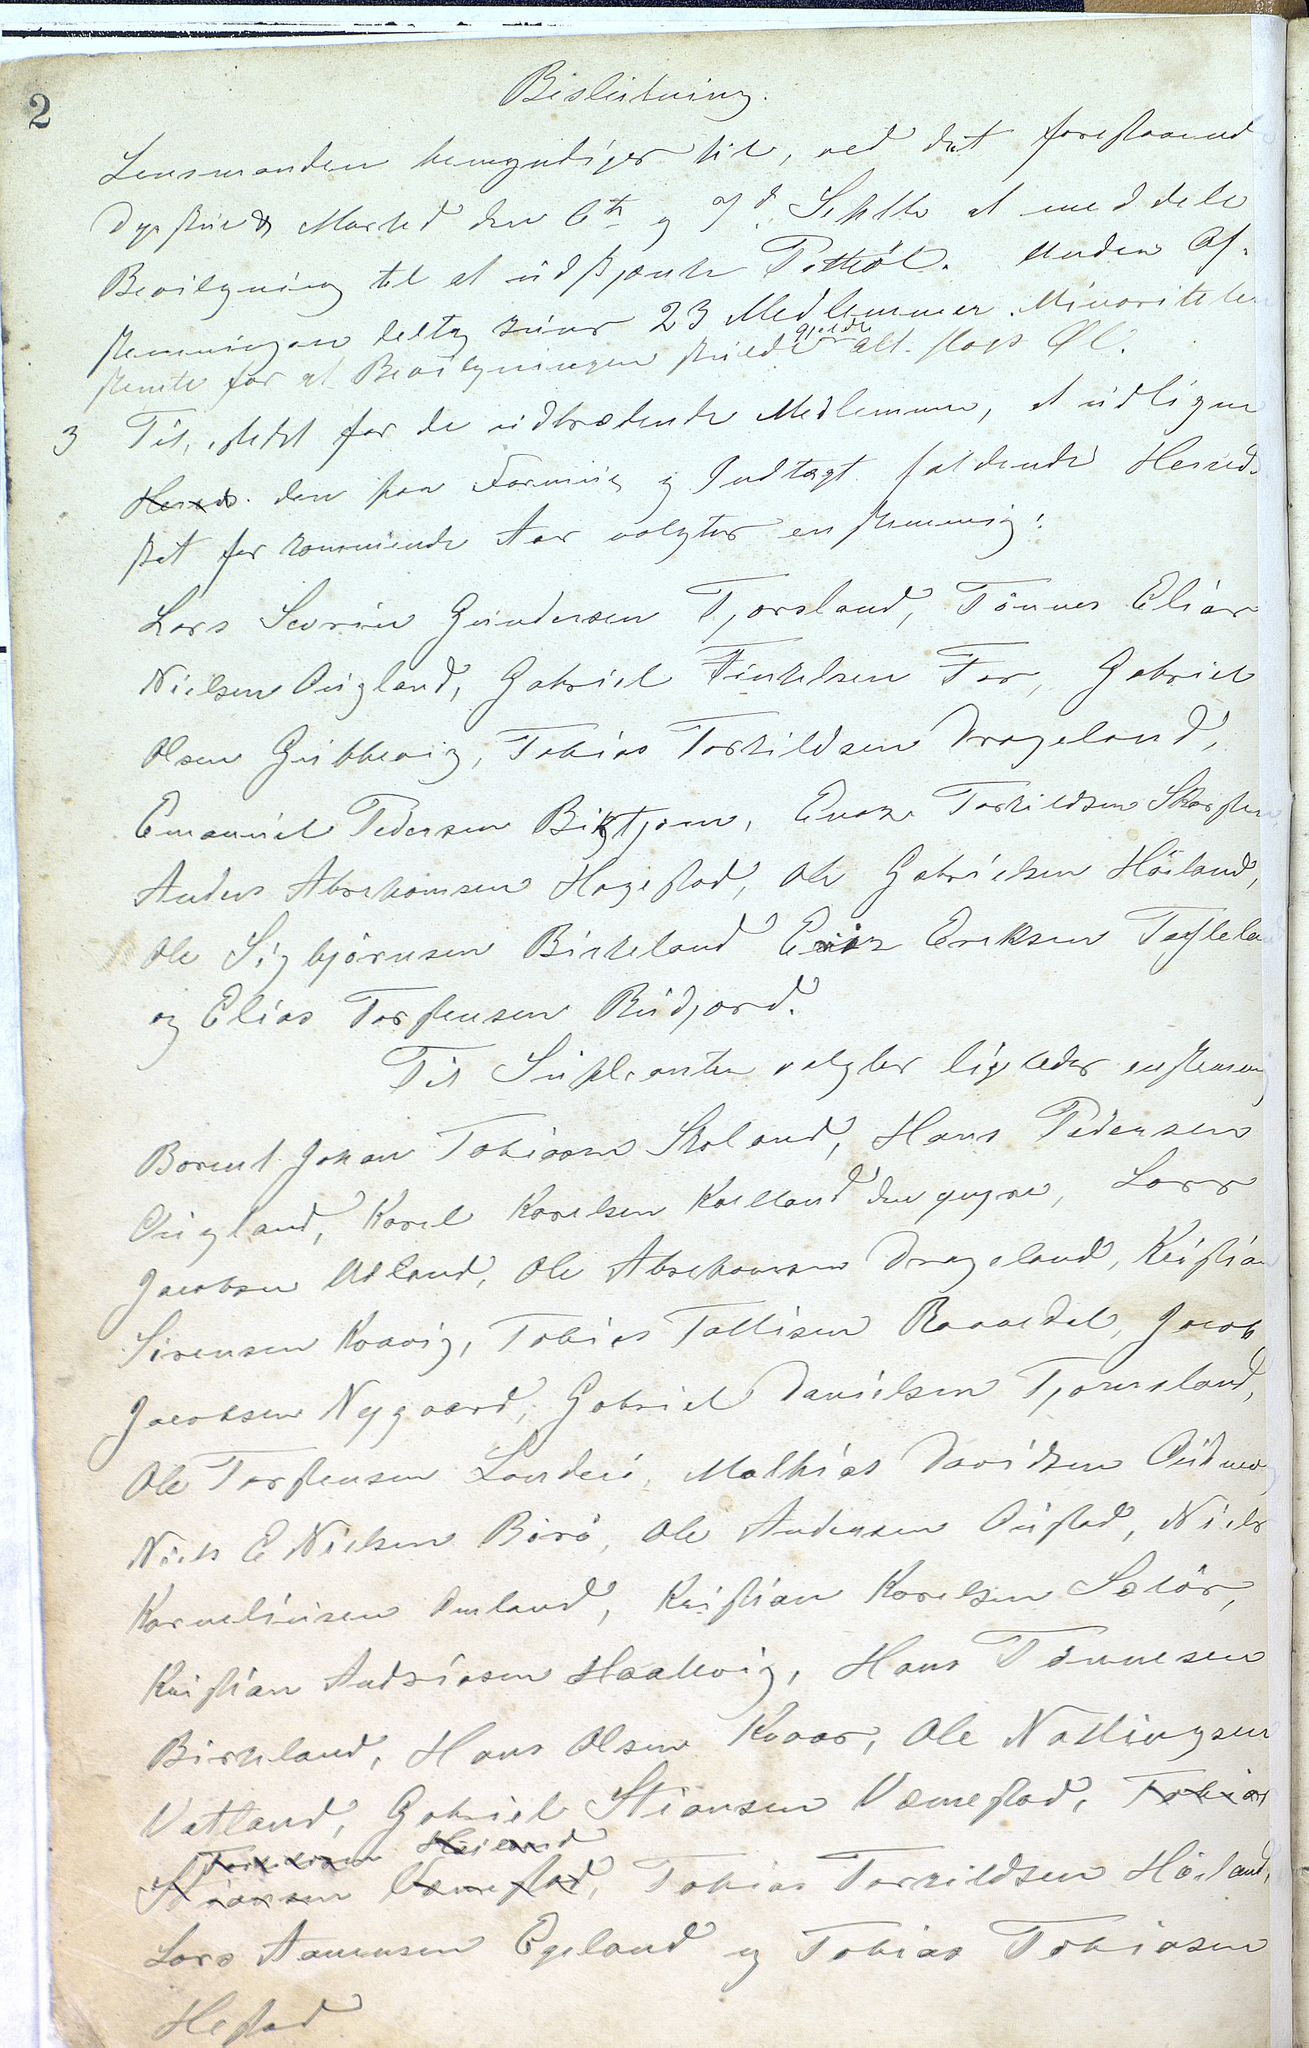 2
Beslutning.
Lensmanden bemyndiges til, ved det forestaaende
Dyrskue & Marked den 6te og 7d. Septbr at meddele
Bevilgning til at udskjænke Potteöl. Under Af-
stemningen deltog kuns 23 Medlemmer. Minoriteten
stemte for at Bevilgningen skulde gjælde alt slags Øl.
3 Til, istedet for de udtrædende Medlemmer, at udligne
Hereds den paa Formue og Indtægt faldende Hereds-
skat for kommende Aar valgtes enstemmig:
Lars Severin Gundersen Tjorsland, Tönnes Elias
Nielsen Augland, Gabriel Terkelsen For, Gabriel
Olsen Gubbevig, Tobias Torkildsen Drageland,
Emanuel Pedersen Birktjörn, Enok Torkildsen
Anders Abrahamsen Hogstad, Ole Gabrielsen Höiland,
Ole Sigbjörnsen Birkeland Erik Eriksen
og Elias Torstensen Rudjord.
Til Suplanter valgtes ligeledes enstemmig
Borent Johan Tobiassen Skoland, Hans Pedersen
Augland, Karel Karelsen Kalland den yngre, Lars
Jacobsen Udland, Ole Abrahamsen Drageland, Kristian
Sirensen Kvavig, Tobias Tallisen Raaadal, Jacob
Jacobsen Nygaard, Gabriel Danielsen Tjorsland,
Ole Torstensen Landöi, Mathias Davidsen
Niels E Nielsen Börö, Ole Andersen Austad, Niels
Korneliusen Omland, Kristian Karelsen Selör,
Kristian Andreasen Haallvig, Hans Tönnesen
Birkeland, Hans Olsen Kvaas, Ole Nattingsen
Vatland, Gabriel Stiansen Væmestad, Tobias
Torkildsen Höiland
Stiansen Væmestad, Tobias Torkildsen Höiland,
Lars Aanensen Egeland og Tobias Tobiasen
Hestad